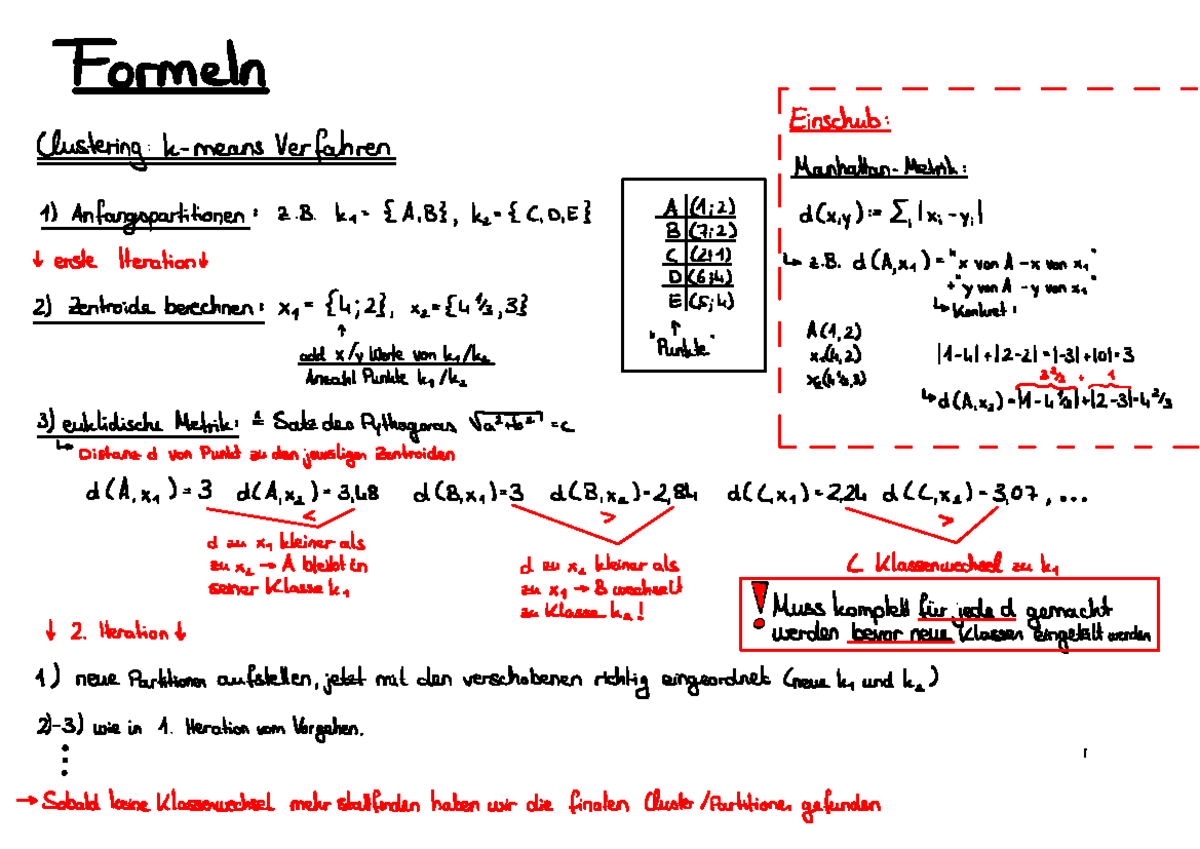 Formeln
Clustering: k-means Verfahren
1) Anfangspartitionen: z.B. k₁ = {A,B}, k₂ = {C,D,E}
↓ erste Iteration↓
2) Zentroide berechnen: x₁ = {4;2}, x₂ = {4 1/3, 3}
↑
add x/y Werte von k₁/k₂
Anzahl Punkte k₁/k₂
A (1;2)
B (7;2)
C (2;1)
D (6;4)
E (5;4)
↑
"Punkte"
Einschub:
Manhattan-Metrik:
d(x,y) := Σᵢ |xᵢ - yᵢ|
↳ z.B. d(A,x₁) = "x von A - x von x₁"
+ "y von A - y von x₁"
↳ Konkret:
A(1,2)
x₁(4,2)
x₂(4 1/3,3)
|1-4| + |2-2| = |-3| + |0| = 3
3 1/3 + 1
↳ d(A,x₂) = |1-4 1/3| + |2-3| = 4 2/3
3) euklidische Metrik: ≙ Satz des Pythagoras √a²+b² = c
↳ Distanz d von Punkt zu den jeweiligen Zentroiden
d(A,x₁) = 3 d(A,x₂) = 3,48 d(B,x₁) = 3 d(B,x₂) = 2,84 d(C,x₁) = 2,24 d(C,x₂) = 3,07, ...
<
d zu x₁ kleiner als
zu x₂ → A bleibt in
seiner Klasse k₁
>
d zu x₂ kleiner als
zu x₁ → B wechselt
zu Klasse k₂!
>
C Klassenwechsel zu k₁
! Muss komplett für jede d gemacht
werden bevor neue Klassen eingeteilt werden
↓ 2. Iteration ↓
1) neue Partitionen aufstellen, jetzt mit den verschobenen richtig eingeordnet (neue k₁ und k₂)
2)-3) wie in 1. Iteration vom Vorgehen.
⋮
→ Sobald keine Klassenwechsel mehr stattfinden haben wir die finalen Cluster/Partitionen gefunden